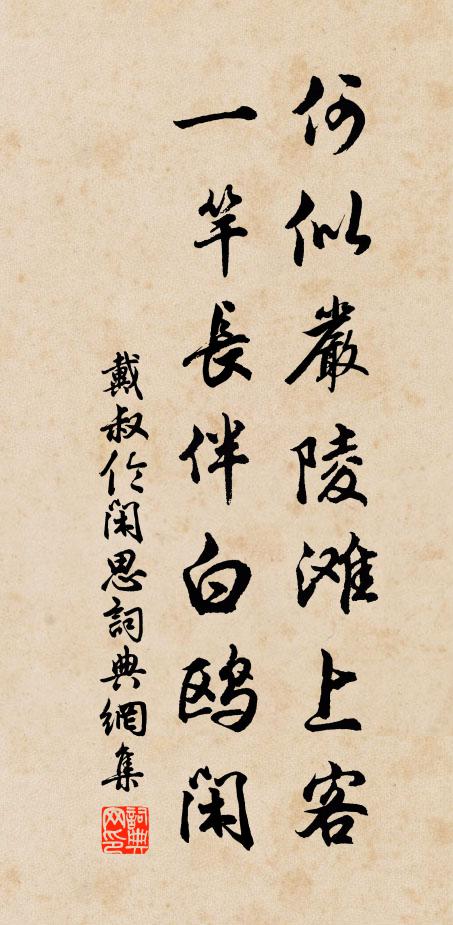 何似嚴陵滩上客
一竿長伴白鸥閑
戴叔伦閑思詞典網集
詞典网印